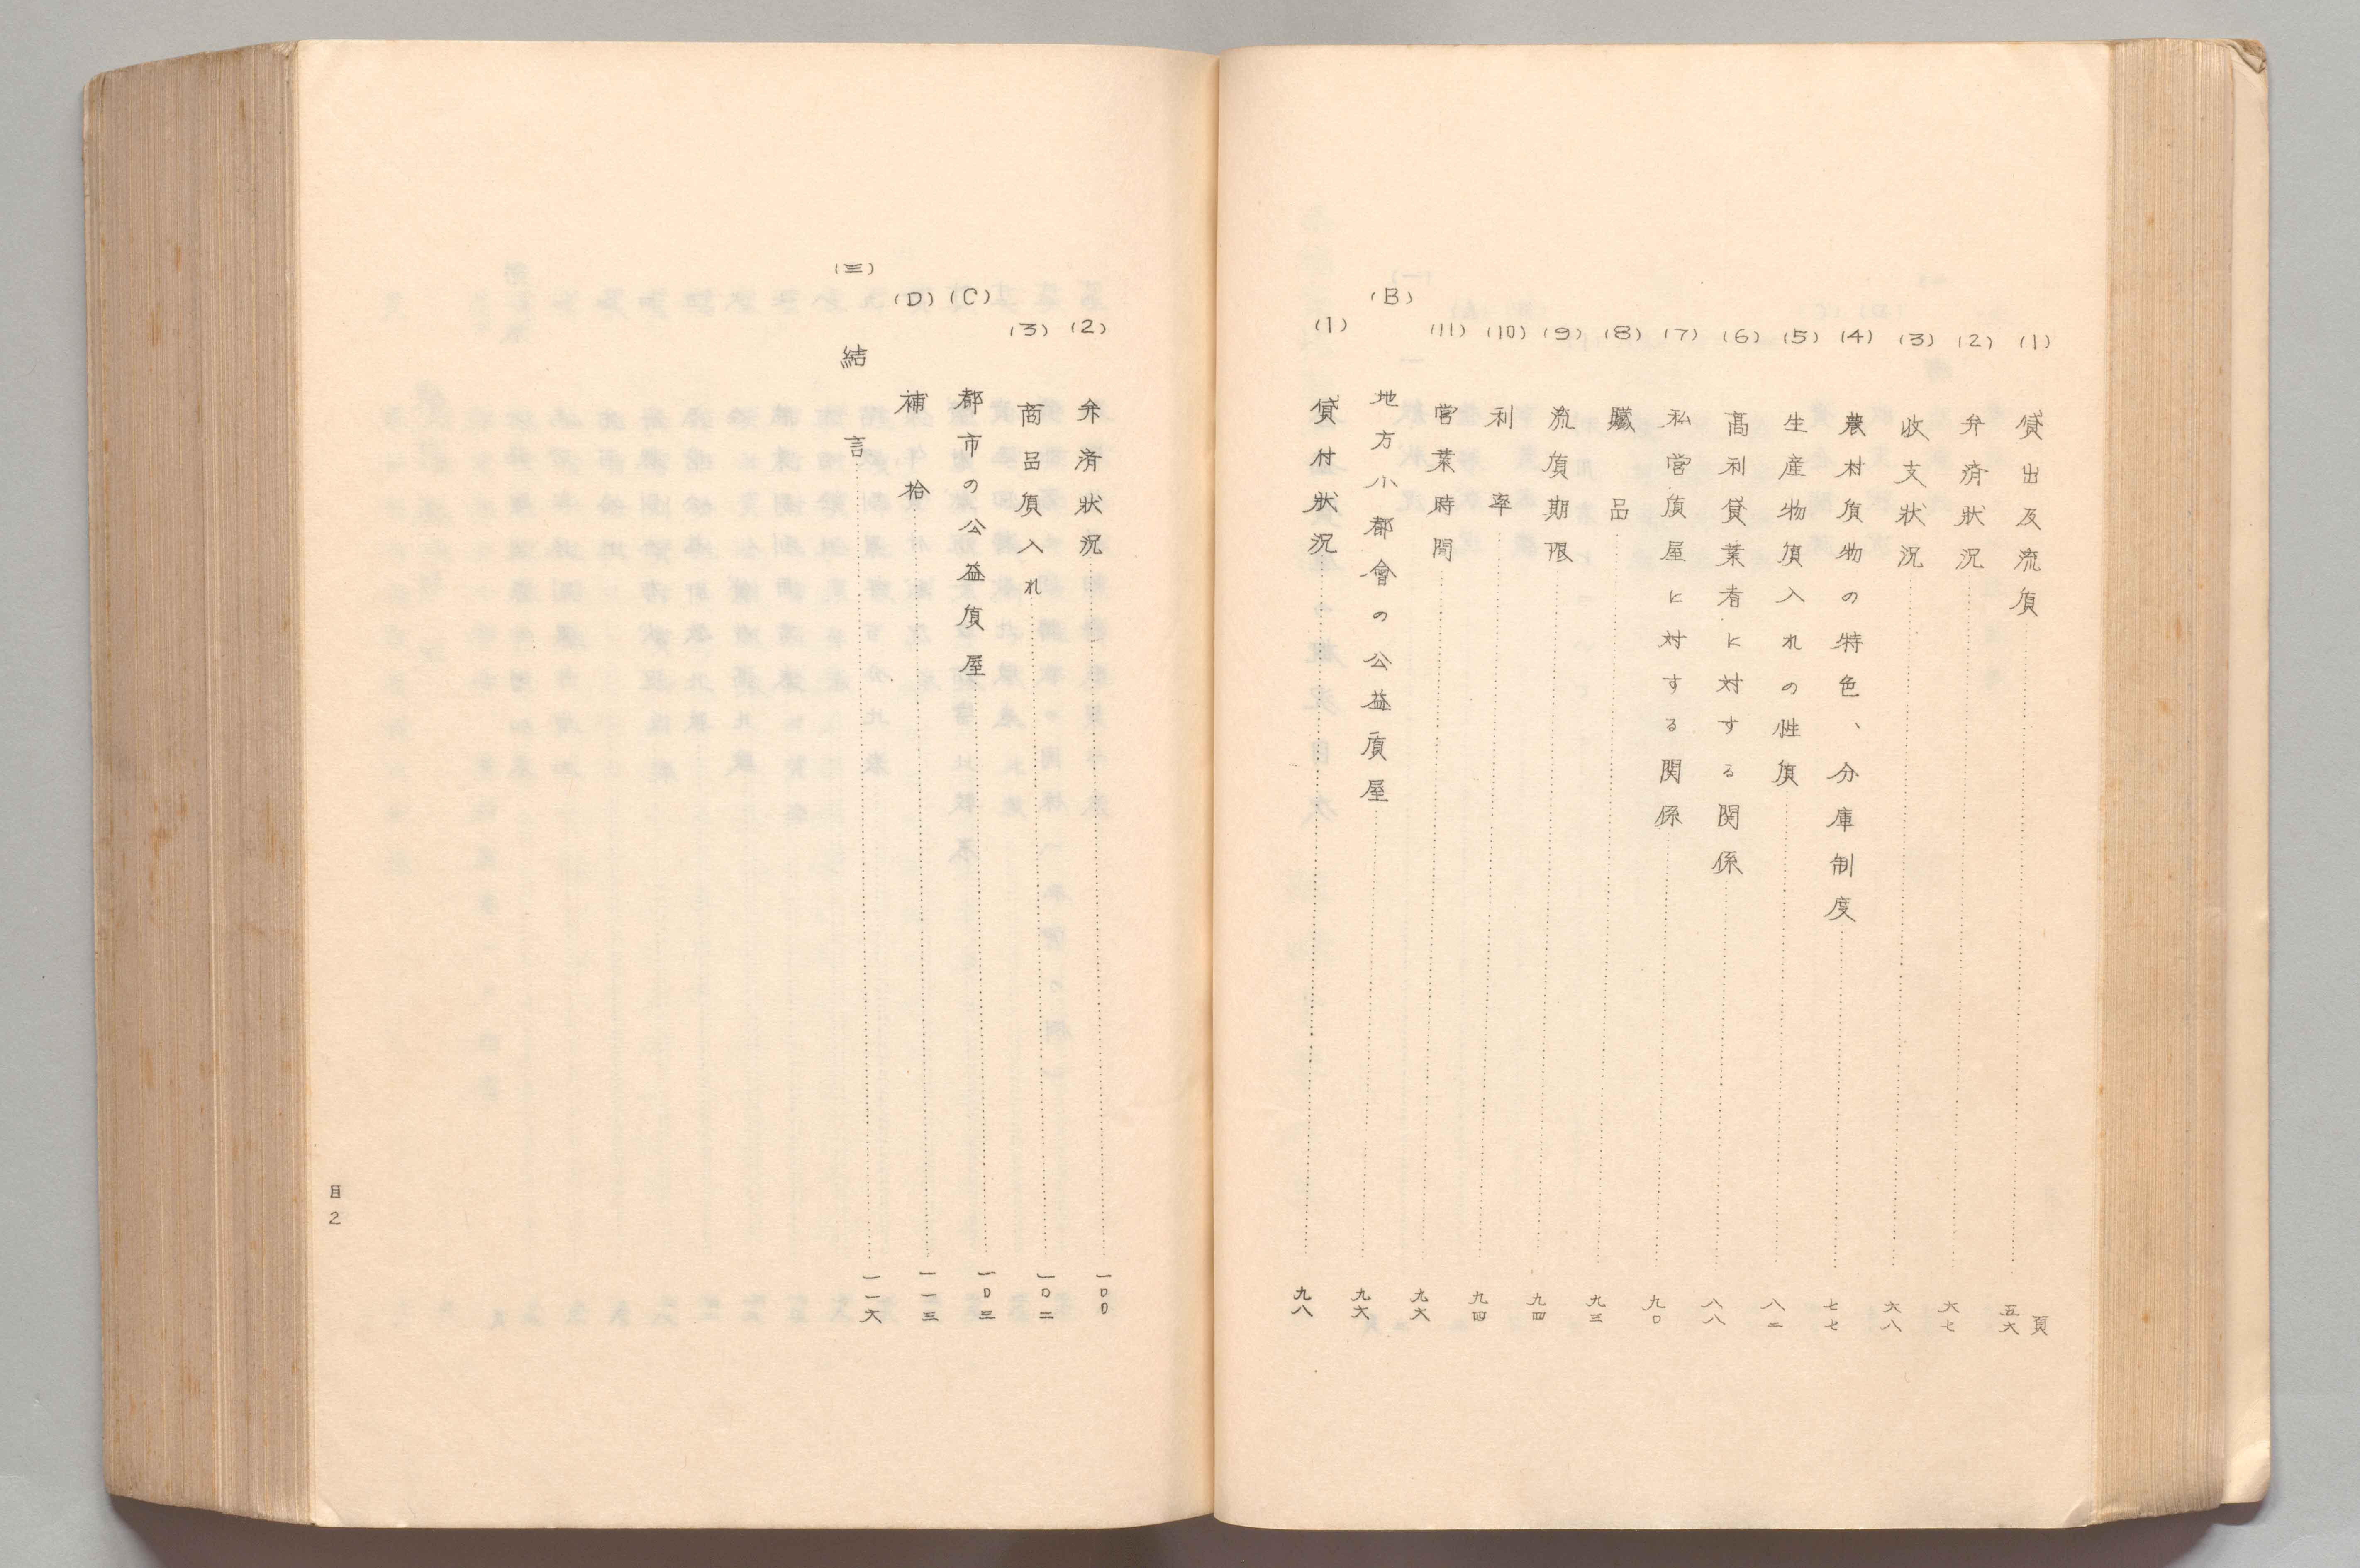 (1) 貸出及流質……五六頁
(2) 弁済狀況……六七
(3) 收支狀況……六八
(4) 農村質物の特色、分庫制度……七七
(5) 生産物質入れの性質……八二
(6) 高利貸業者に対する関係……八八
(7) 私営質屋に対する関係……九〇
(8) 贓品……九三
(9) 流質期限……九四
(10) 利率……九四
(11) 営業時間……九六
(B) 地方小都會の公益質屋……九六
(1) 貸付狀況……九八
(2) 弁済狀況……一〇〇
(3) 商品質入れ……一〇二
(C) 都市の公益質屋……一〇三
(D) 補拾……一一三
(三) 結言……一一六
目2